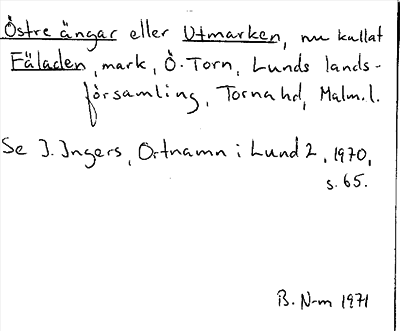 Östre ängar eller Utmarken, nu kallat
Fäladen, mark, Ö. Torn, Lunds lands-
församling, Torna hd, Malm. l.
Se I. Ingers, Ortnamn i Lund 2, 1970,
s. 65.
B. N-m 1971